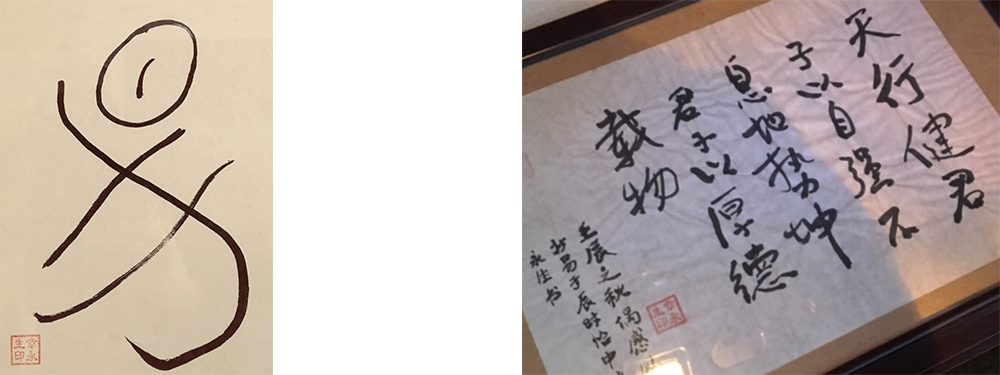 易
永
生印
天行健君
子以自强不
息地势坤
君子以厚德
載物
壬辰之秋偶感
易于辰时恰中
永生书
永
生印